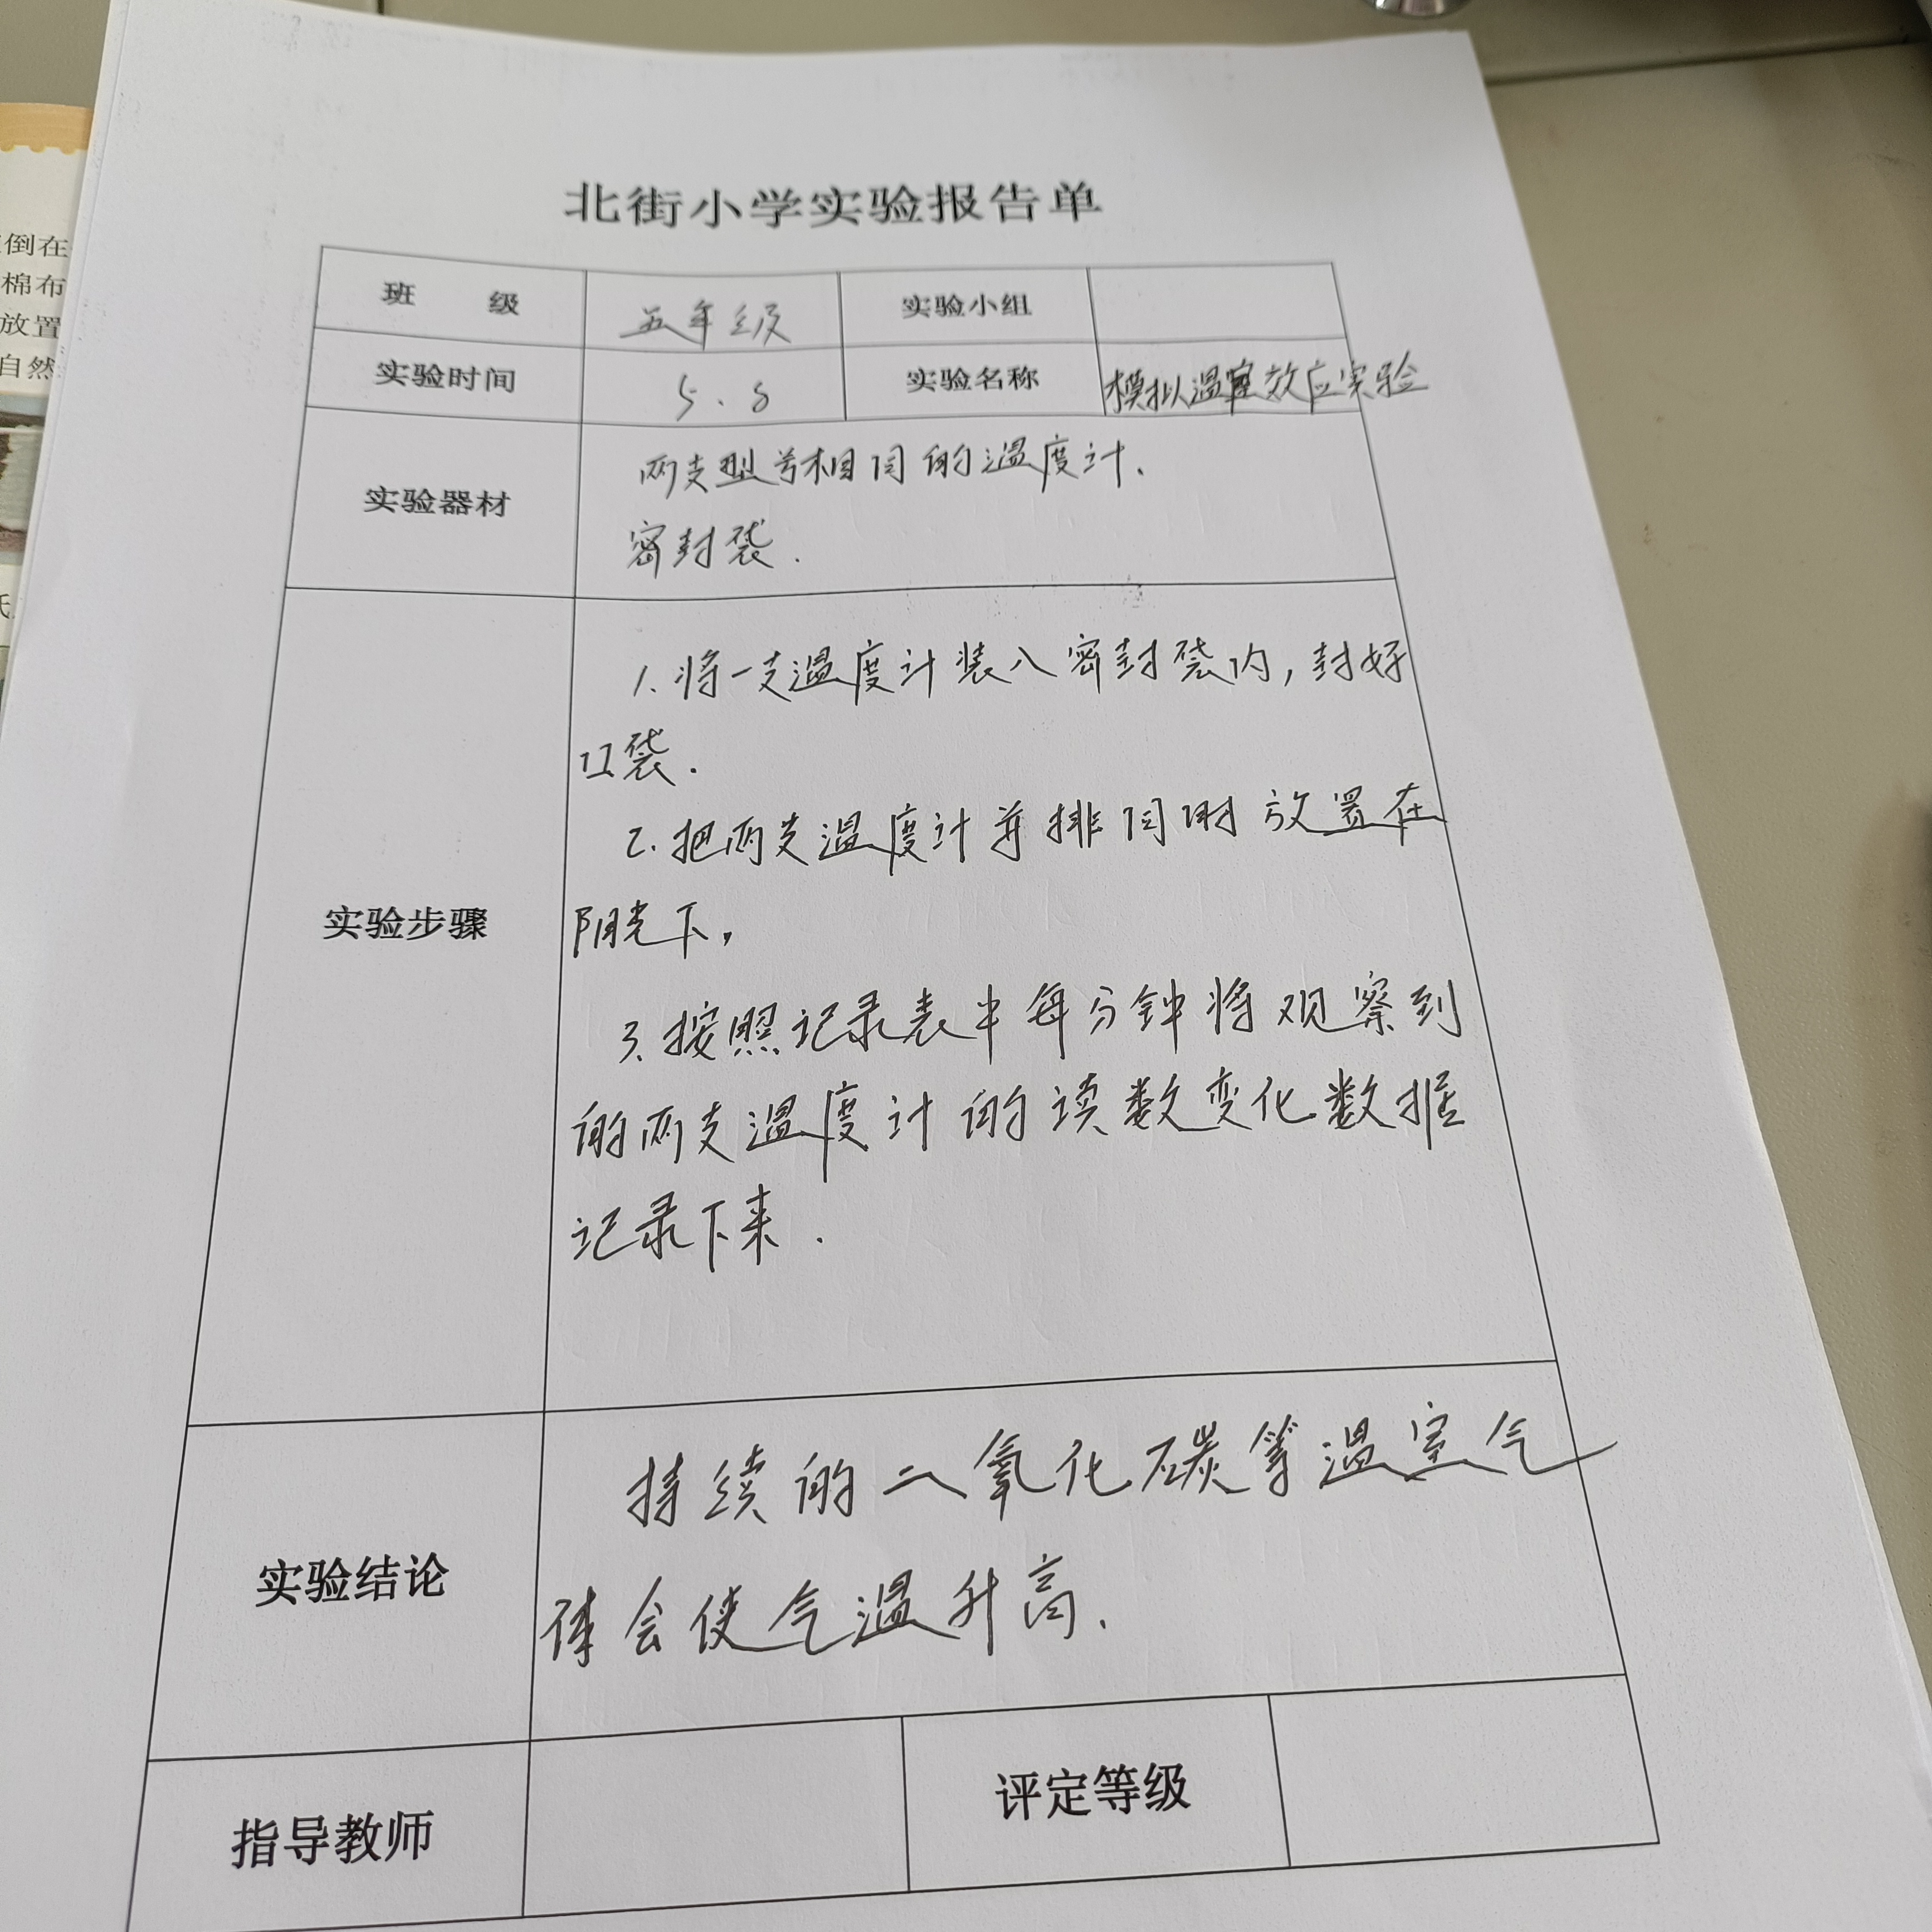 北街小学实验报告单
班 级 五年级 实验小组
实验时间 5.8 实验名称 模拟温室效应实验
实验器材
两支型号相同的温度计、
密封袋.
实验步骤
1.将一支温度计装入密封袋内,封好
口袋.
2.把两支温度计并排同时放置在
阳光下,
3.按照记录表中每分钟将观察到
的两支温度计的读数变化数据
记录下来.
实验结论
持续的二氧化碳等温室气
体会使气温升高.
指导教师 评定等级
倒在
棉布
放置
自然